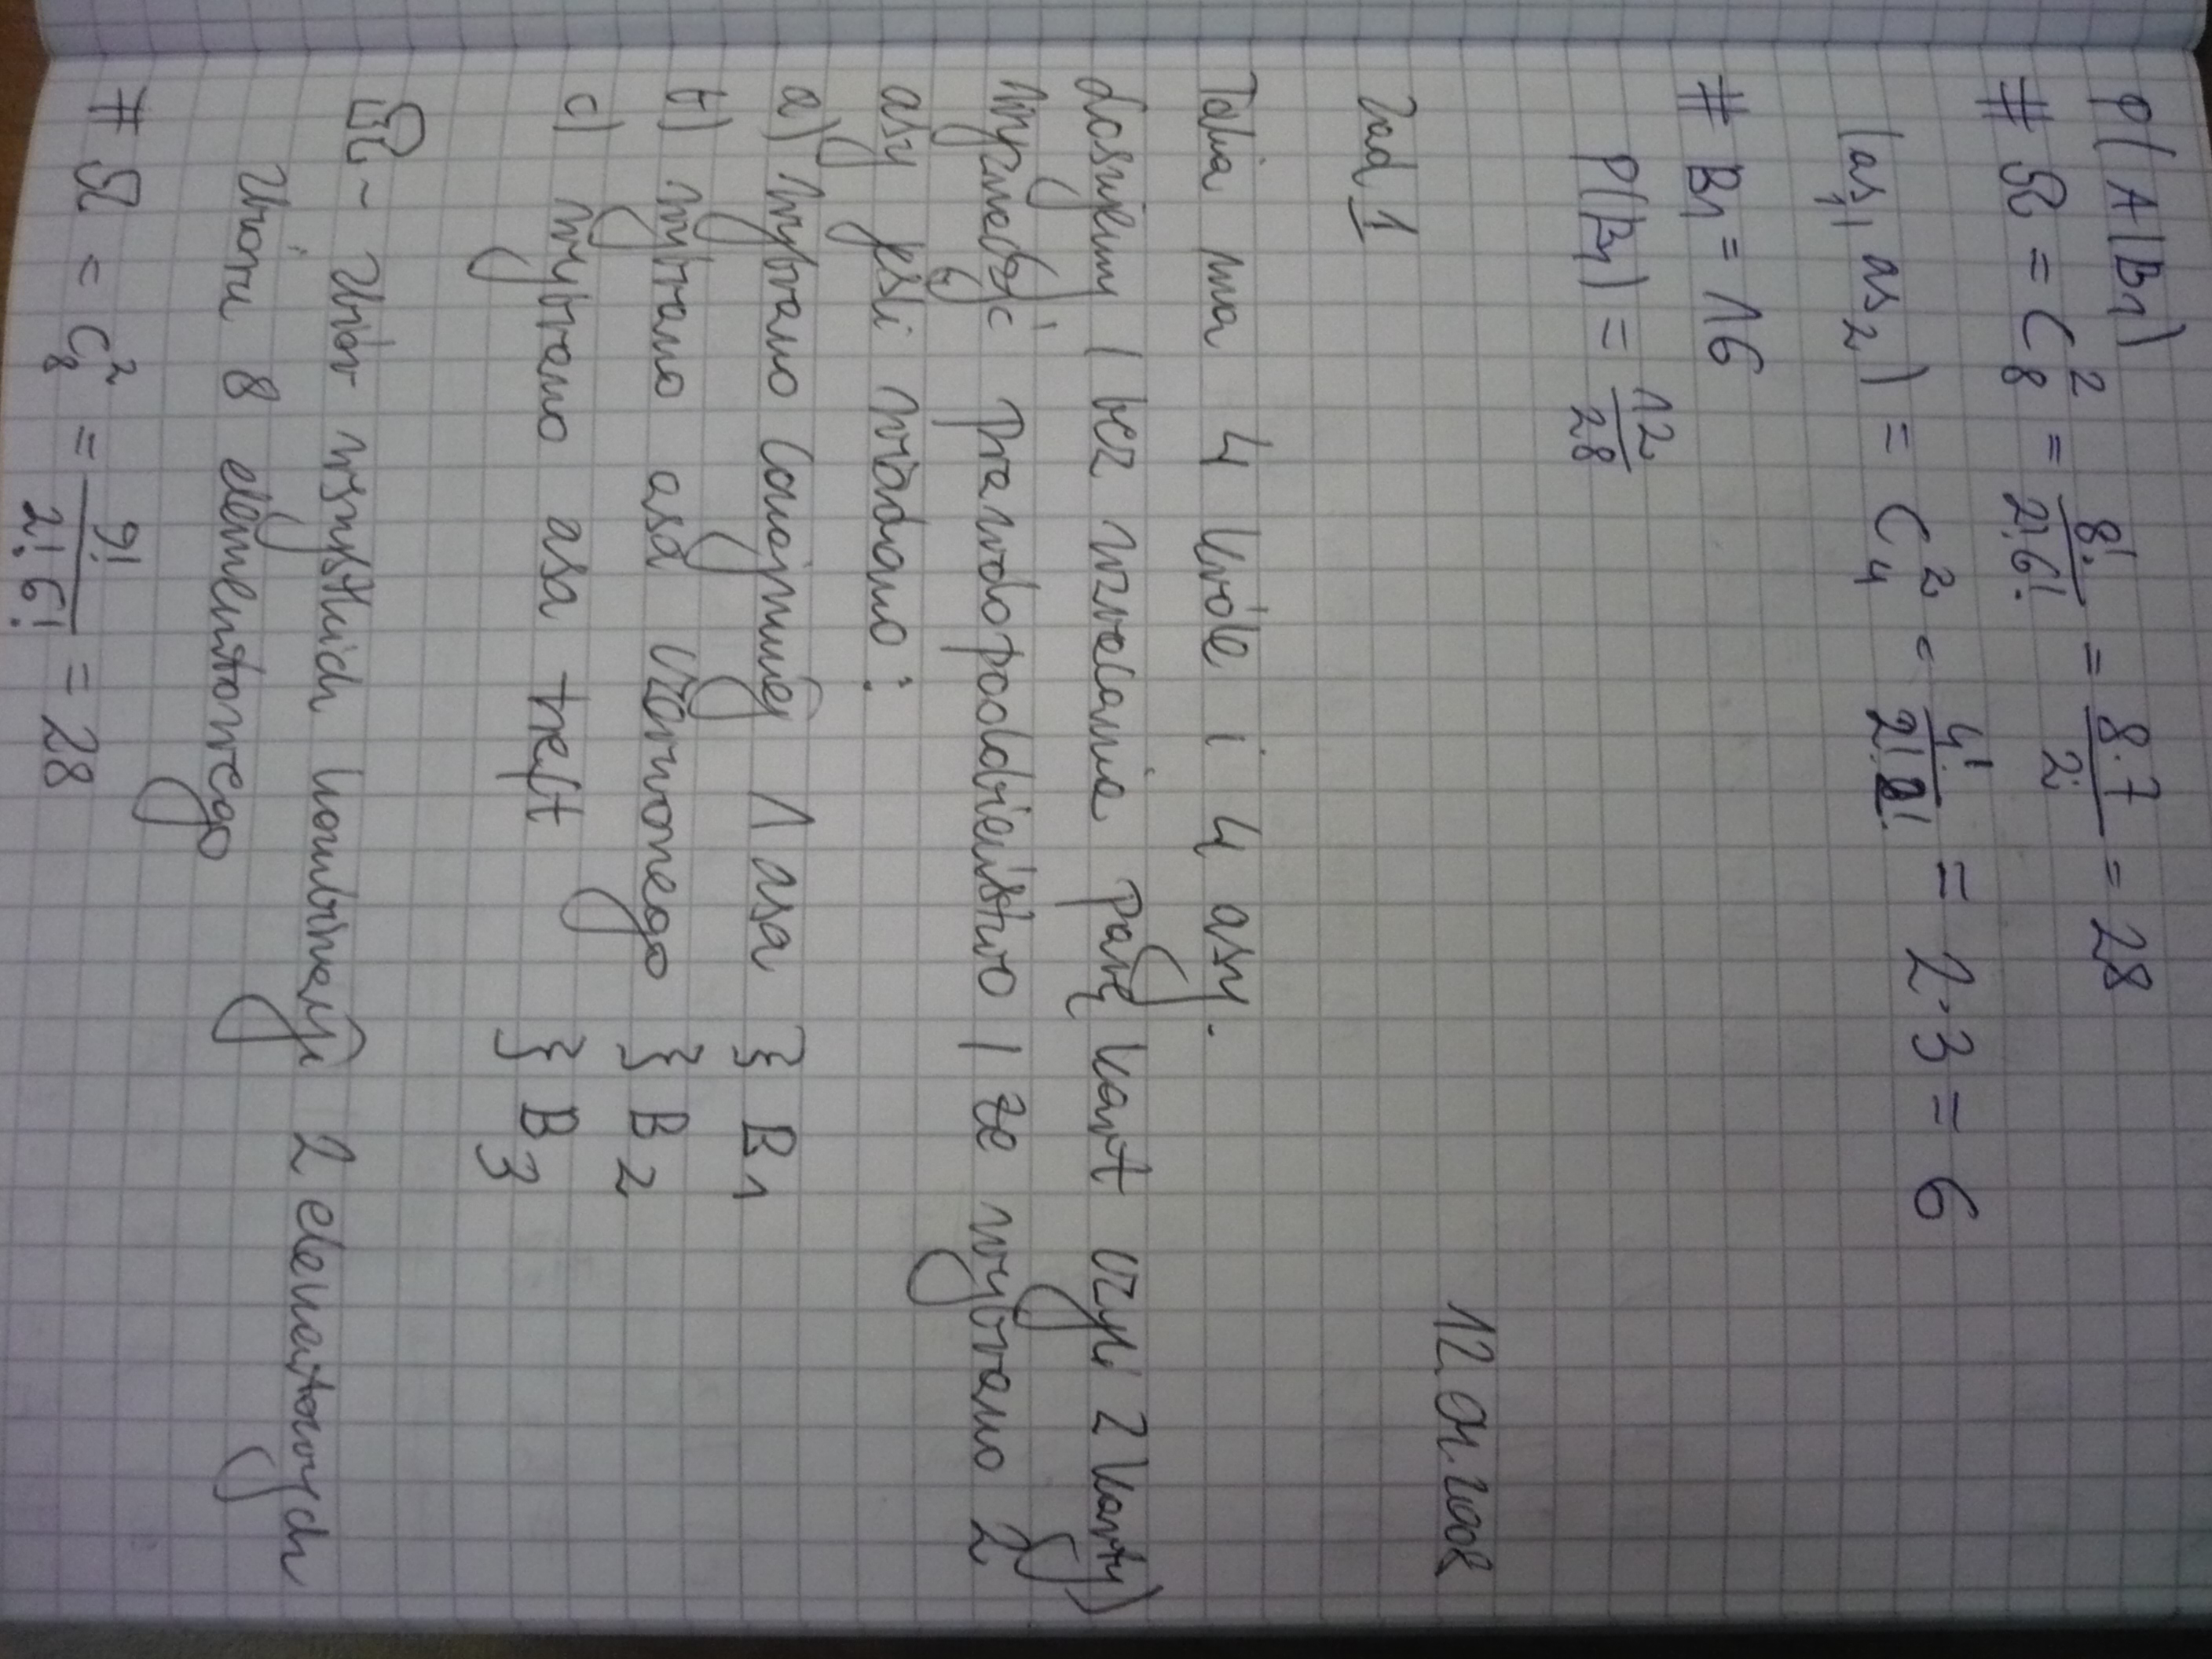 P(A|B1)
# Ω = C₈² = 8!/2!6! = 8·7/2 = 28
(as₁, as₂) = C₄² = 4!/2!2! = 2·3 = 6
# B1 = 16
P(B1) = 12/28
12.01.2008
Zad 1
Talia ma 4 króle i 4 asy.
Losujemy / bez zwracania parę kart czyli 2 karty)
Wyznaczyć prawdopodobieństwo / że wybrano 2
asy jeśli wiadomo:
a) wybrano conajmniej 1 asa } B1
b) wybrano asa czerwonego } B2
c) wybrano asa trefl } B3
Ω – zbiór wszystkich kombinacji 2 elementowych
zbioru 8 elementowego
# Ω = C₈² = 9!/2!6! = 28